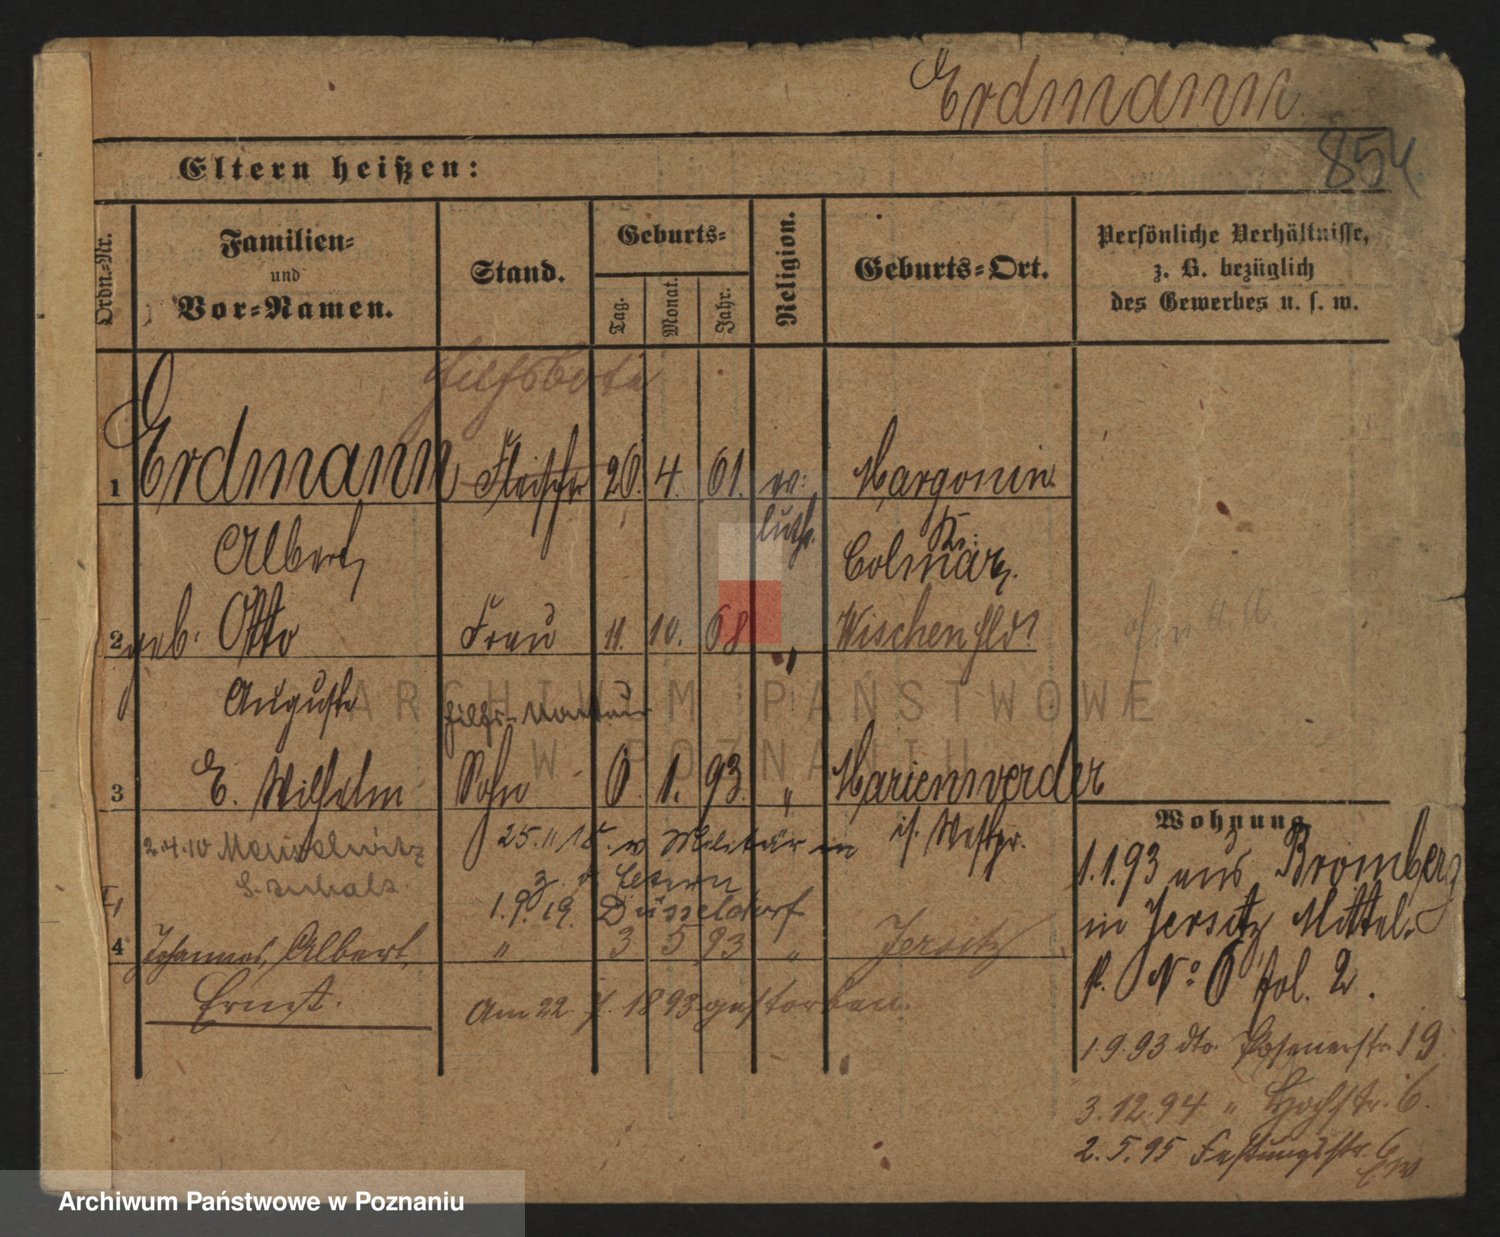 Erdmann.
854
Eltern heißen:
Ordn.-Nr.
Familien-
und
Vor-Namen.
Stand.
Geburts-
Tag.
Monat.
Jahr.
Religion.
Geburts-Ort.
Persönliche Verhältnisse,
z. B. bezüglich
des Gewerbes u. s. w.
Hilfsbote
1 Erdmann Fleischer 20. 4. 61. ev: Margonin
luth.
Albert, Kr: Colmar.
2 geb. Otto Frau 11. 10. 68 " Wischen
Auguste
3 E. Wilhelm Sohn 6. 1. 93. " Marienwerder
i/. Westpr.
2.4.10 Meuselwitz
25.11.15. v Militär in
z. d. Eltern
1.9.19. Düsseldorf
4 Johannes, Albert, " 3 5 93 " Jersitz
Ernst. Am 22. 7. 1893 gestorben.
Wohnung
1.1.93 aus Bromberg
in Jersitz Mittel-
No 6 Pol. 2.
1.9.93 dto. Posenerstr. 19.
3.12.94 " Hochstr. 6.
2.5.95 Festungsstr. 6
ARCHIWUM PAŃSTWOWE
W POZNANIU
Archiwum Państwowe w Poznaniu